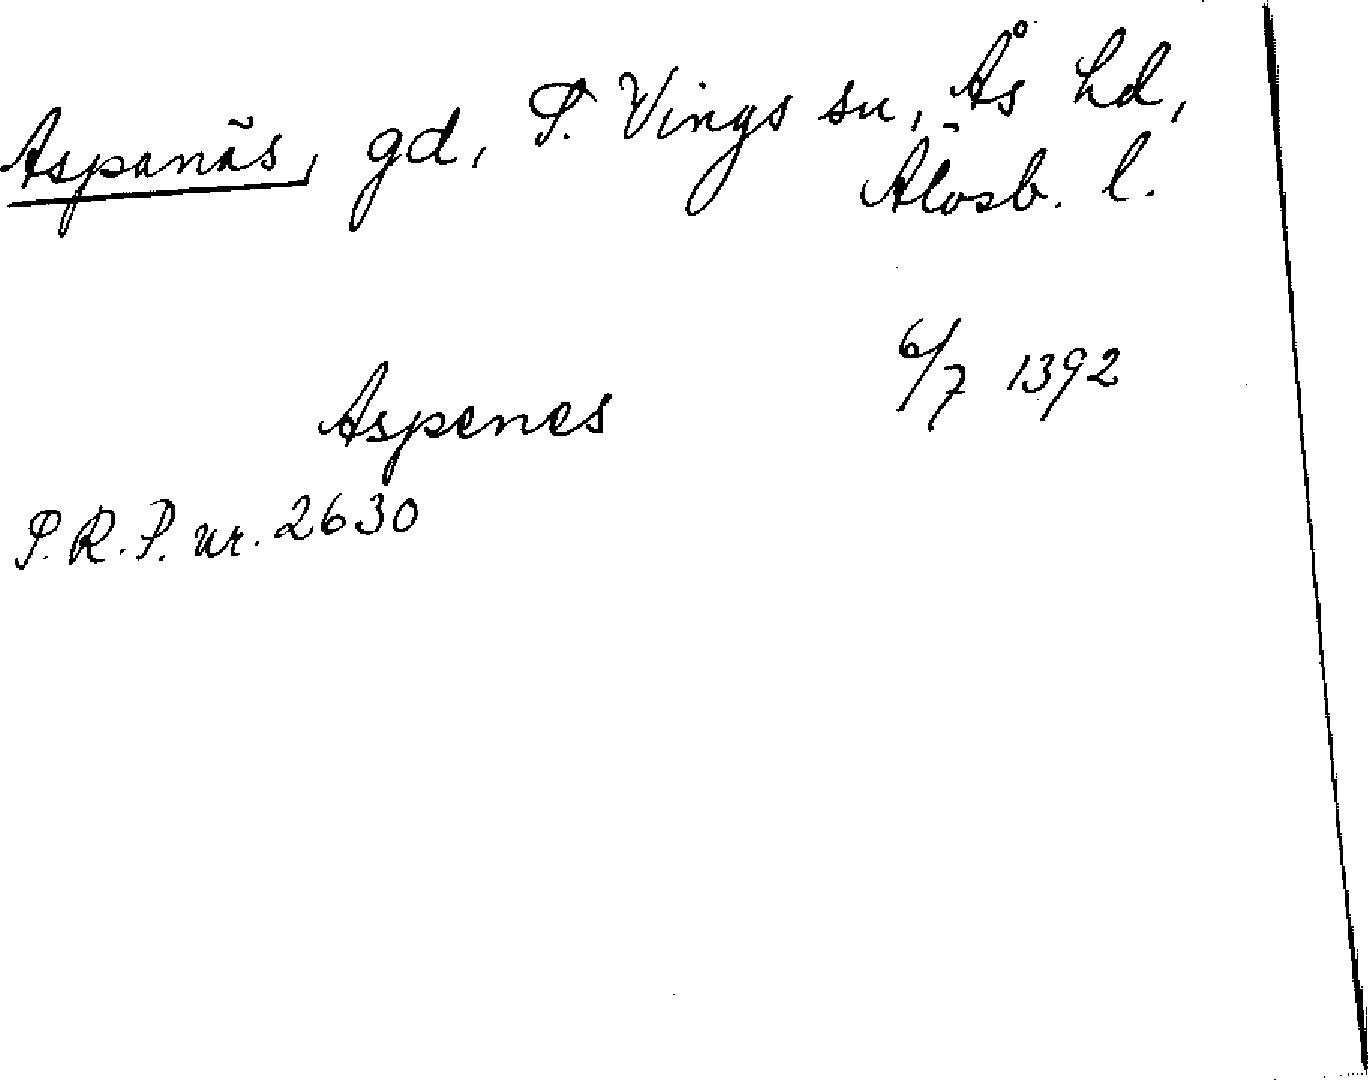 Aspanäs, gd, S. Vings sn, Ås hd,
Älvsb. l.
Aspenes 6/7 1392
S.R.P. nr. 2630